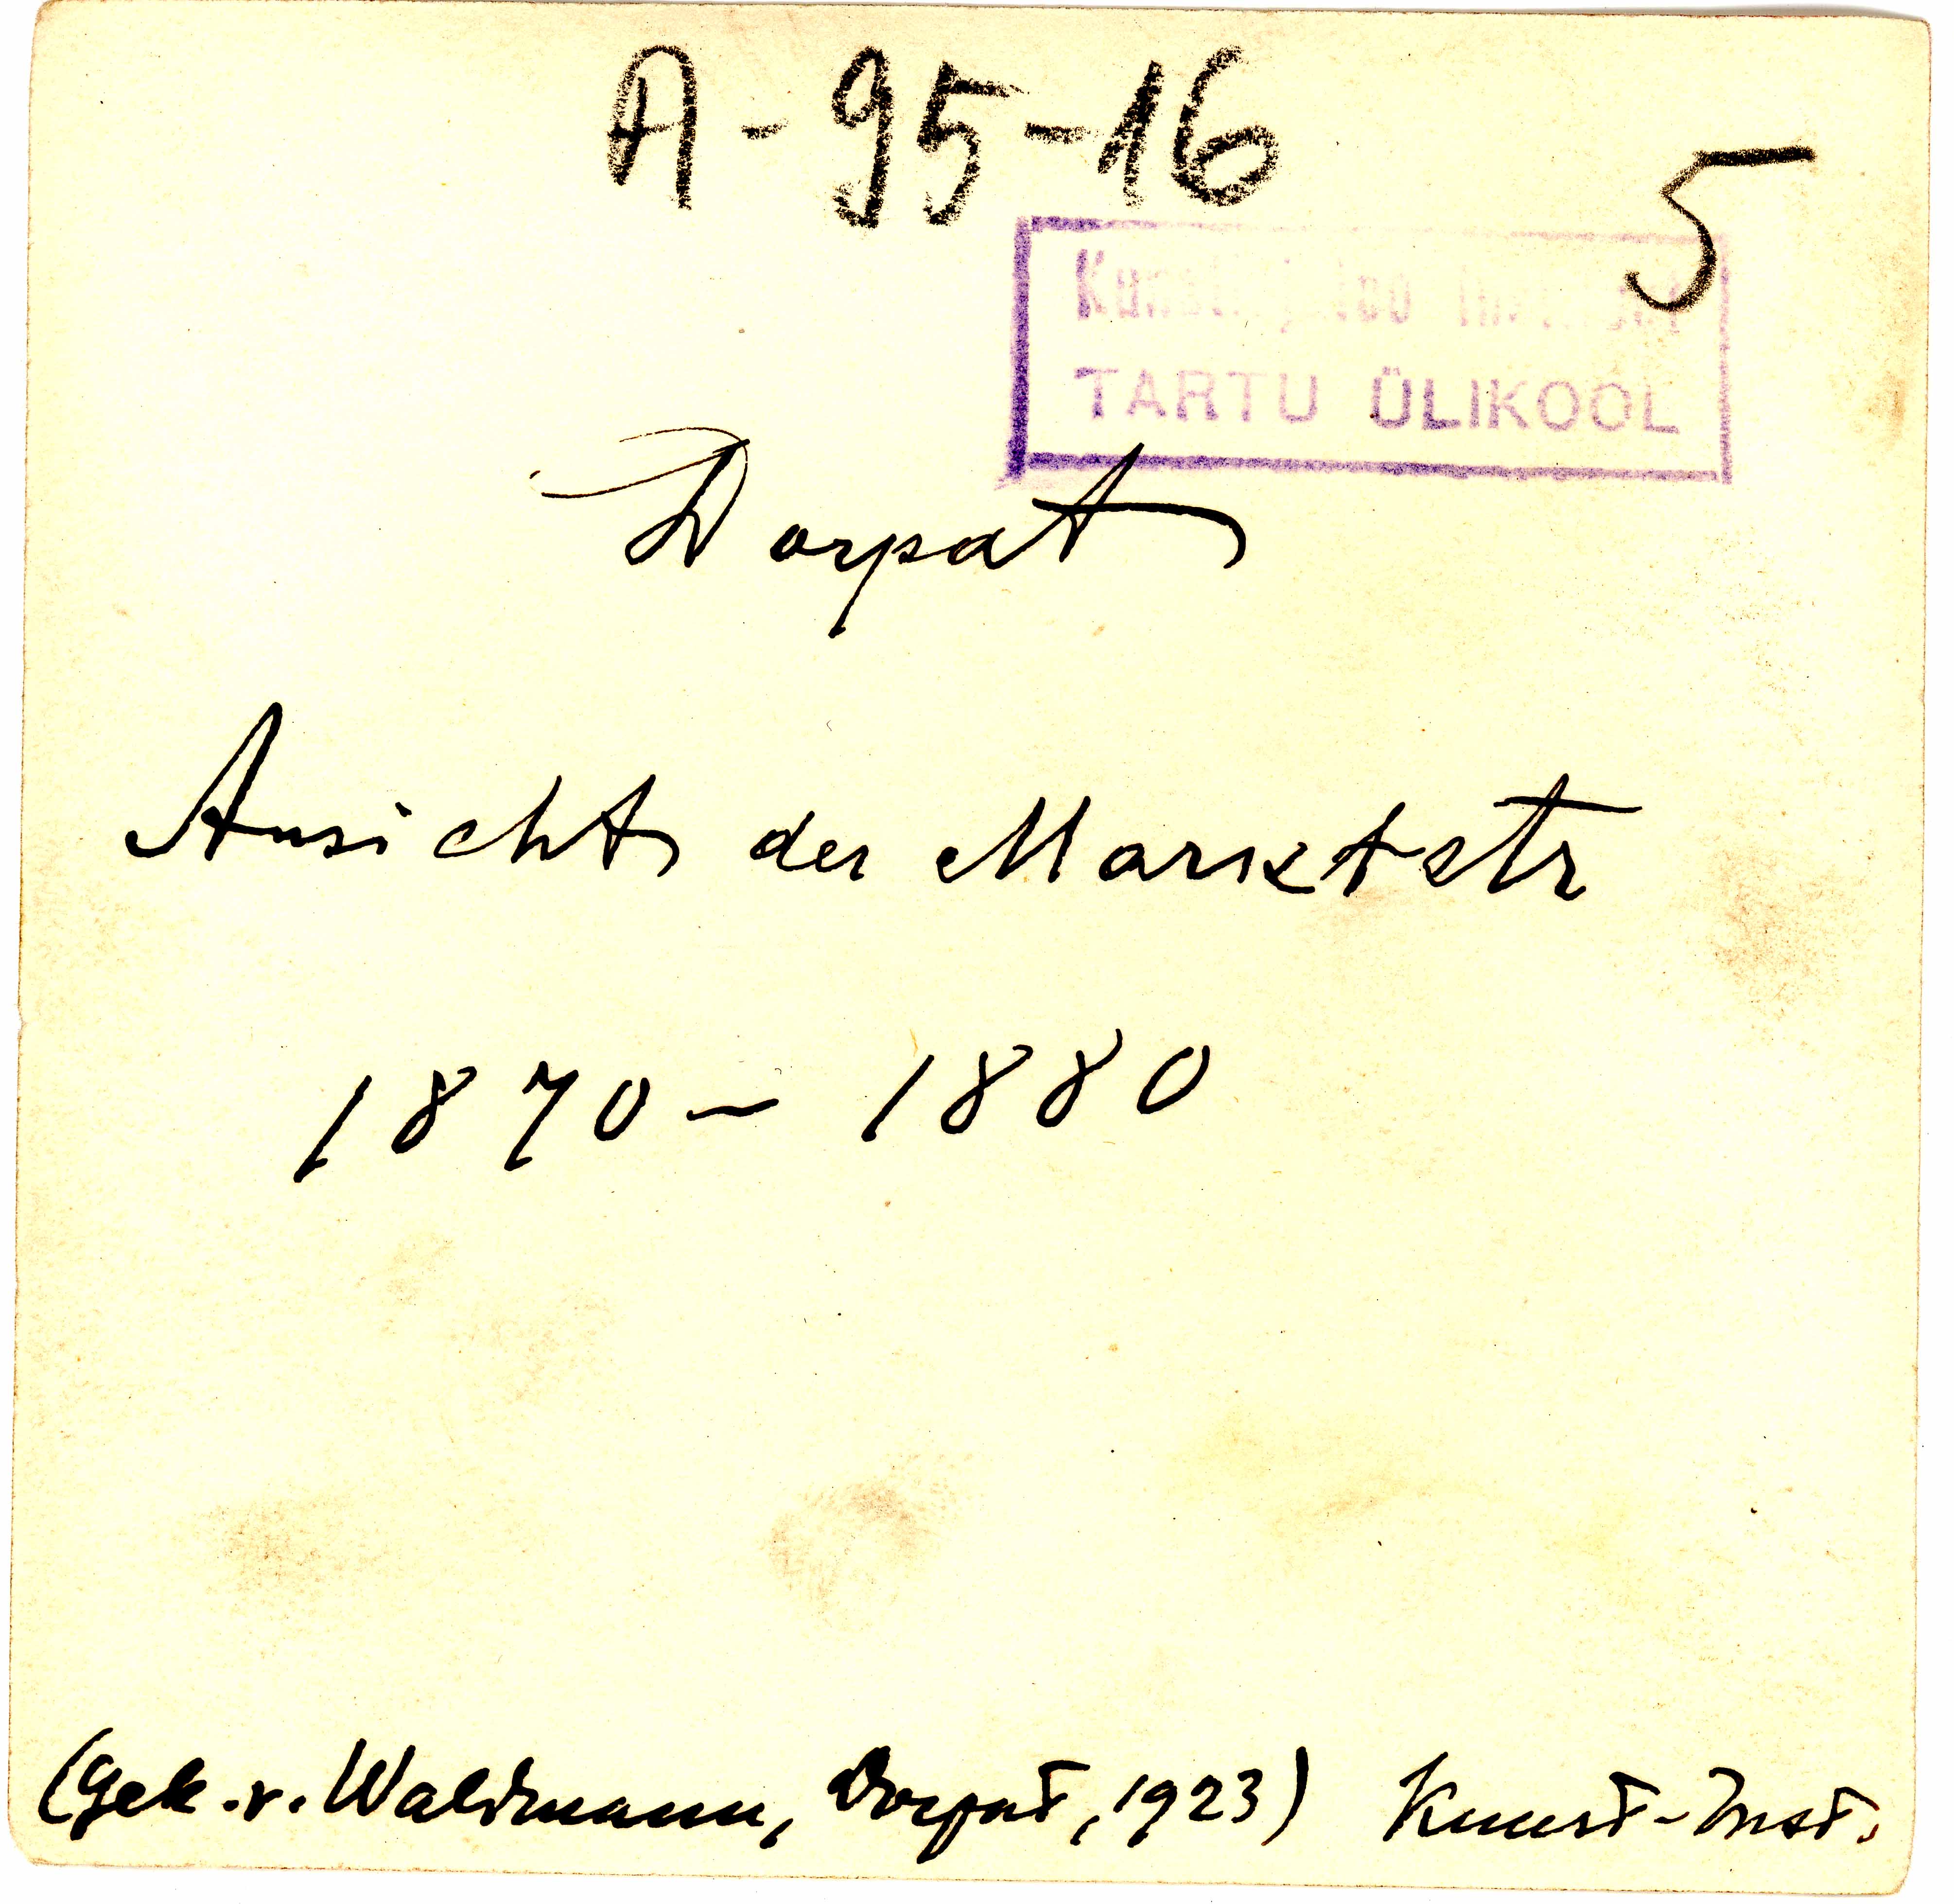 A-95-16
5
TARTU ÜLIKOOL
Dorpat
Ansicht der Marktstr
1870 - 1880
(Gek. v. Waldmann, Dorpat, 1923) Kunst-Inst.